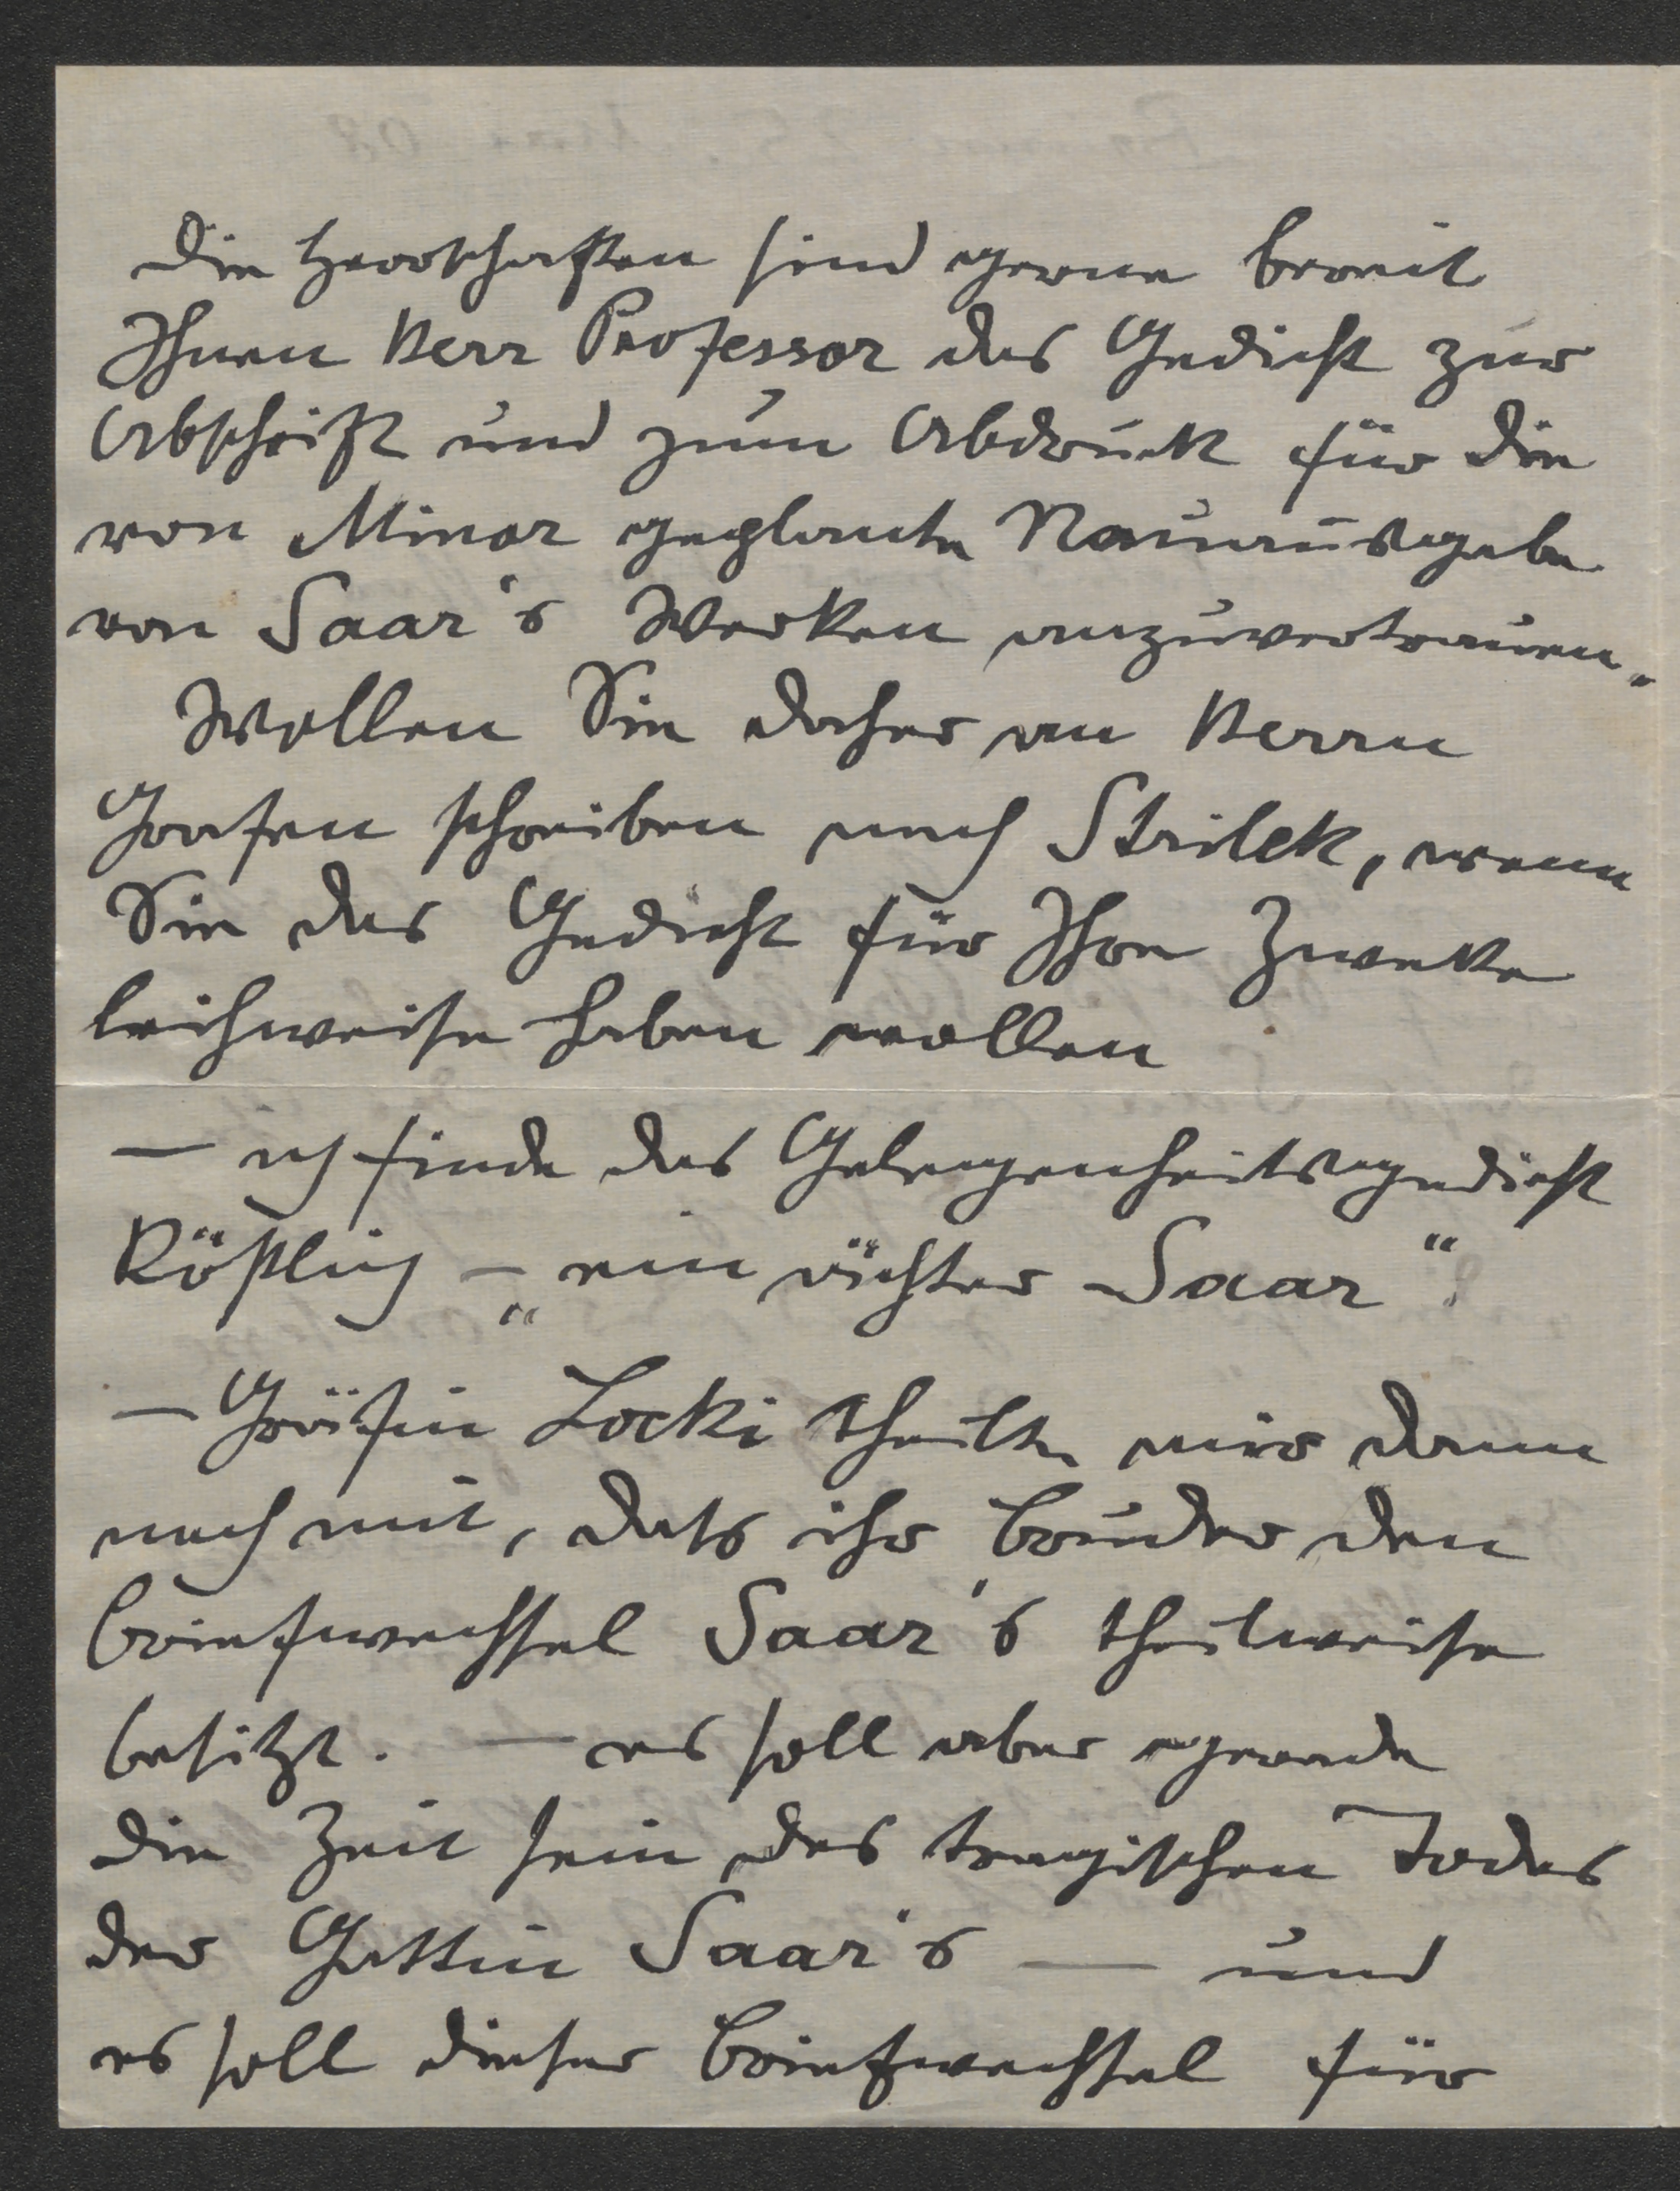 Die Herrschaften sind gerne bereit
Ihnen Herr Professor das Gedicht zur
Abschrift und zum Abdruck für die
von Minor geplante Neuausgabe
von Saar's Werken anzuvertrauen.
Wollen Sie daher an Herrn
Grafen schreiben nach Strilek, wenn
Sie das Gedicht für Ihre Zwecke
leihweise haben wollen
– ich finde das Gelegenheitsgedicht
köstlich – „ein ächter Saar“
– Gräfin Locki theilte mir dann
noch mit, dass ihr Bruder den
Briefwechsel Saar's theilweise
besitzt. – es soll aber gerade
die Zeit sein des tragischen Todes
der Gattin Saar's – und
es soll dieser Briefwechsel für